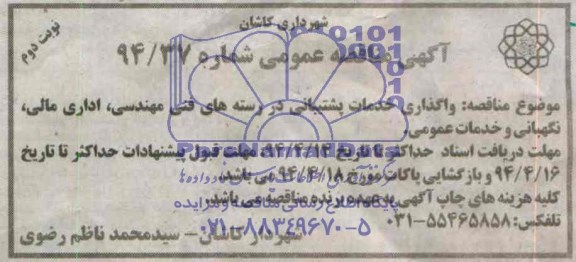 شهرداری کاشان
نوبت دوم
آگهی مناقصه عمومی شماره ۹۴/۳۷
موضوع مناقصه: واگذاری خدمات پشتیبانی در رسته های فنی مهندسی، اداری مالی،
نگهبانی و خدمات عمومی.
مهلت دریافت اسناد حداکثر تا تاریخ ۹۴/۴/۱۴، مهلت قبول پیشنهادات حداکثر تا تاریخ
۹۴/۴/۱۶ و بازگشایی پاکات مورخ ۹۴/۴/۱۸ می باشد.
کلیه هزینه های چاپ آگهی به عهده برنده مناقصه می باشد.
تلفکس: ۵۵۴۶۵۸۵۸-۰۳۱
۰۲۱-۸۸۳۴۹۶۷۰-۵
شهردار کاشان – سیدمحمد ناظم رضوی